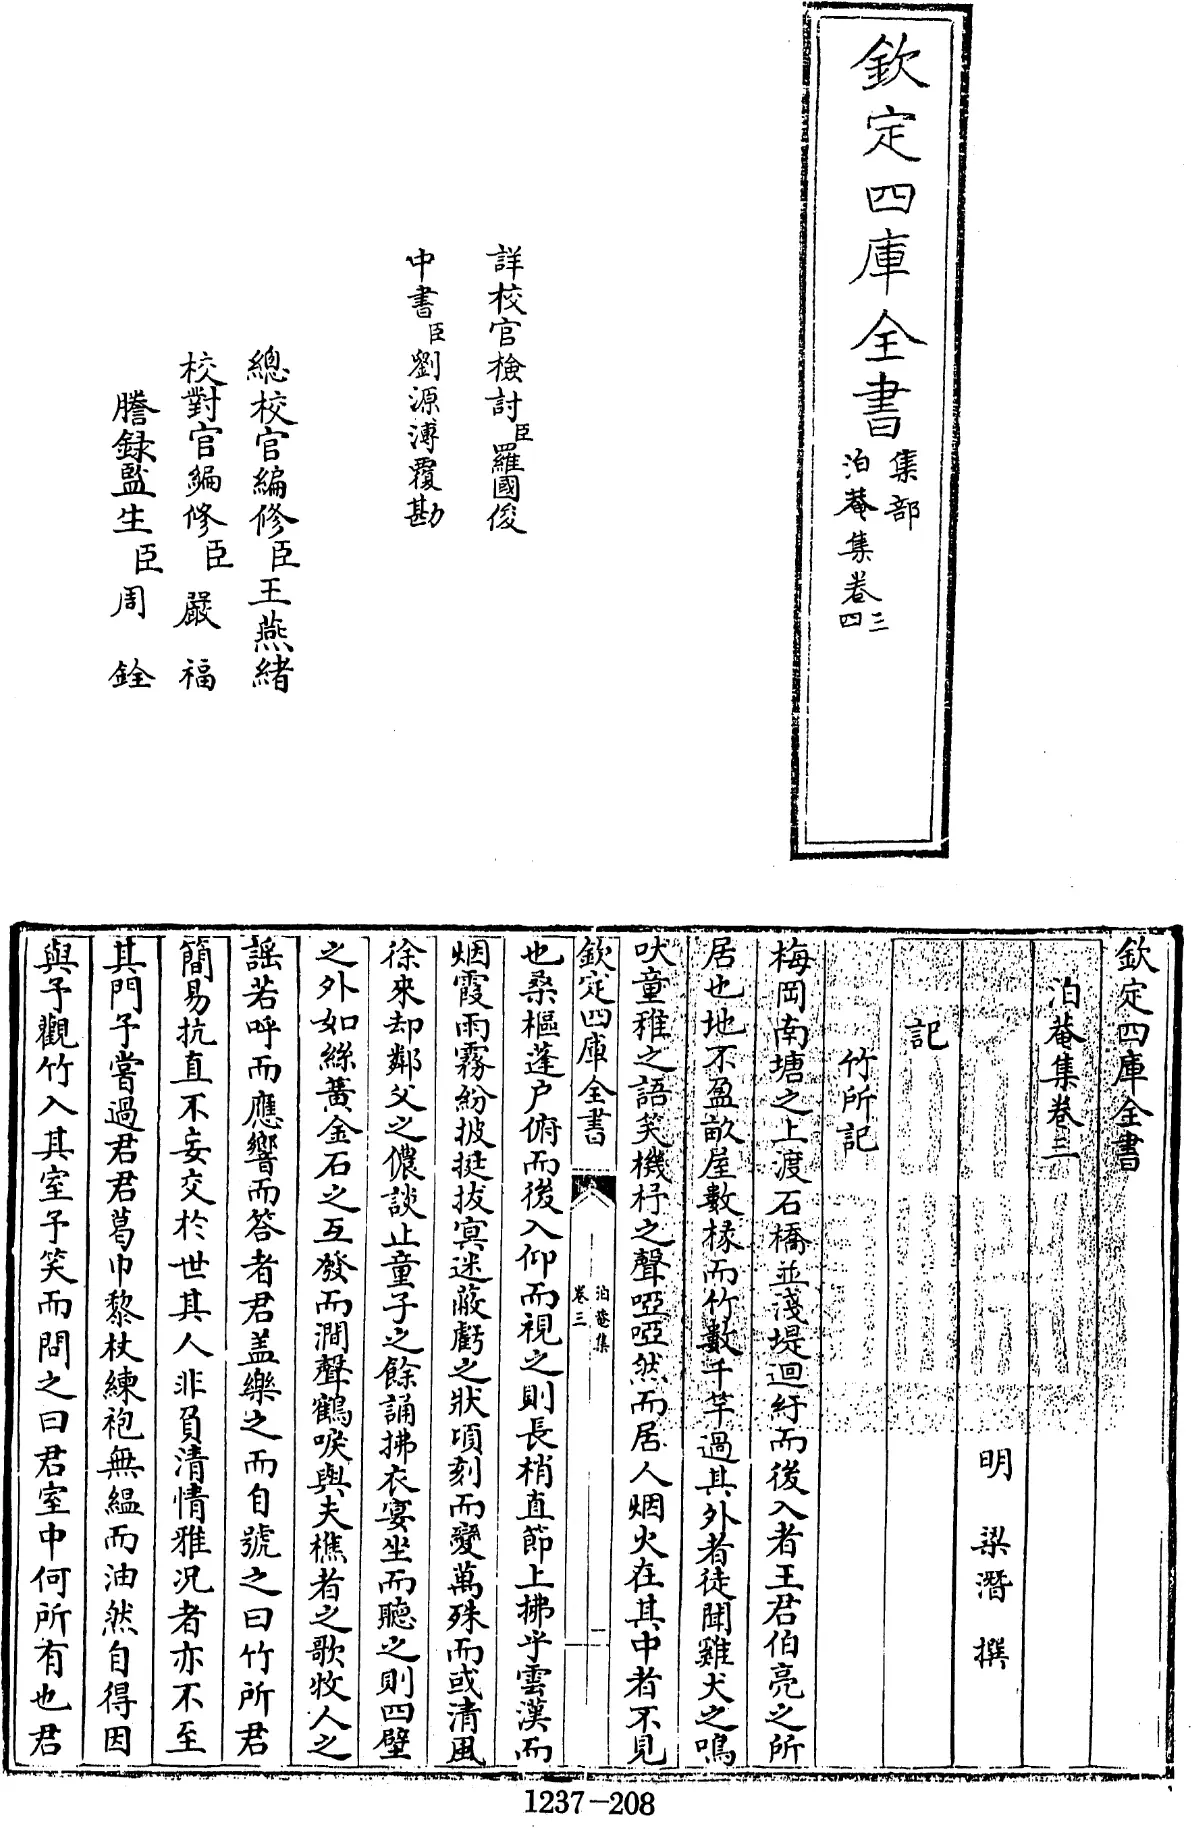 欽定四庫全書
集部
泊菴集卷三
四
詳校官檢討臣羅國俊
中書臣劉源溥覆勘
總校官編修臣王燕緒
校對官編修臣嚴福
謄錄監生臣周銓
欽定四庫全書
泊菴集卷三
明 梁潛 撰
記
竹所記
梅岡南塘之上渡石橋並淺堤迴紆而後入者王君伯亮之所
居也地不盈畝屋數椽而竹數千竿過其外者徒聞雞犬之鳴
吠童稚之語笑機杼之聲啞啞然而居人烟火在其中者不見
欽定四庫全書
泊菴集
卷三
二
也桑樞蓬户俯而後入仰而視之則長梢直節上拂乎雲漢而
烟霞雨霧紛披挺拔冥迷蔽虧之狀頃刻而變萬殊而或清風
徐來却鄰父之儂談止童子之餘誦拂衣宴坐而聽之則四壁
之外如絲簧金石之互發而澗聲鶴唳與夫樵者之歌牧人之
謡若呼而應響而答者君盖樂之而自號之曰竹所君
簡易抗直不妄交於世其人非負清情雅况者亦不至
其門予嘗過君君葛巾黎杖練袍無緼而油然自得因
與予觀竹入其室予笑而問之曰君室中何所有也君
1237-208